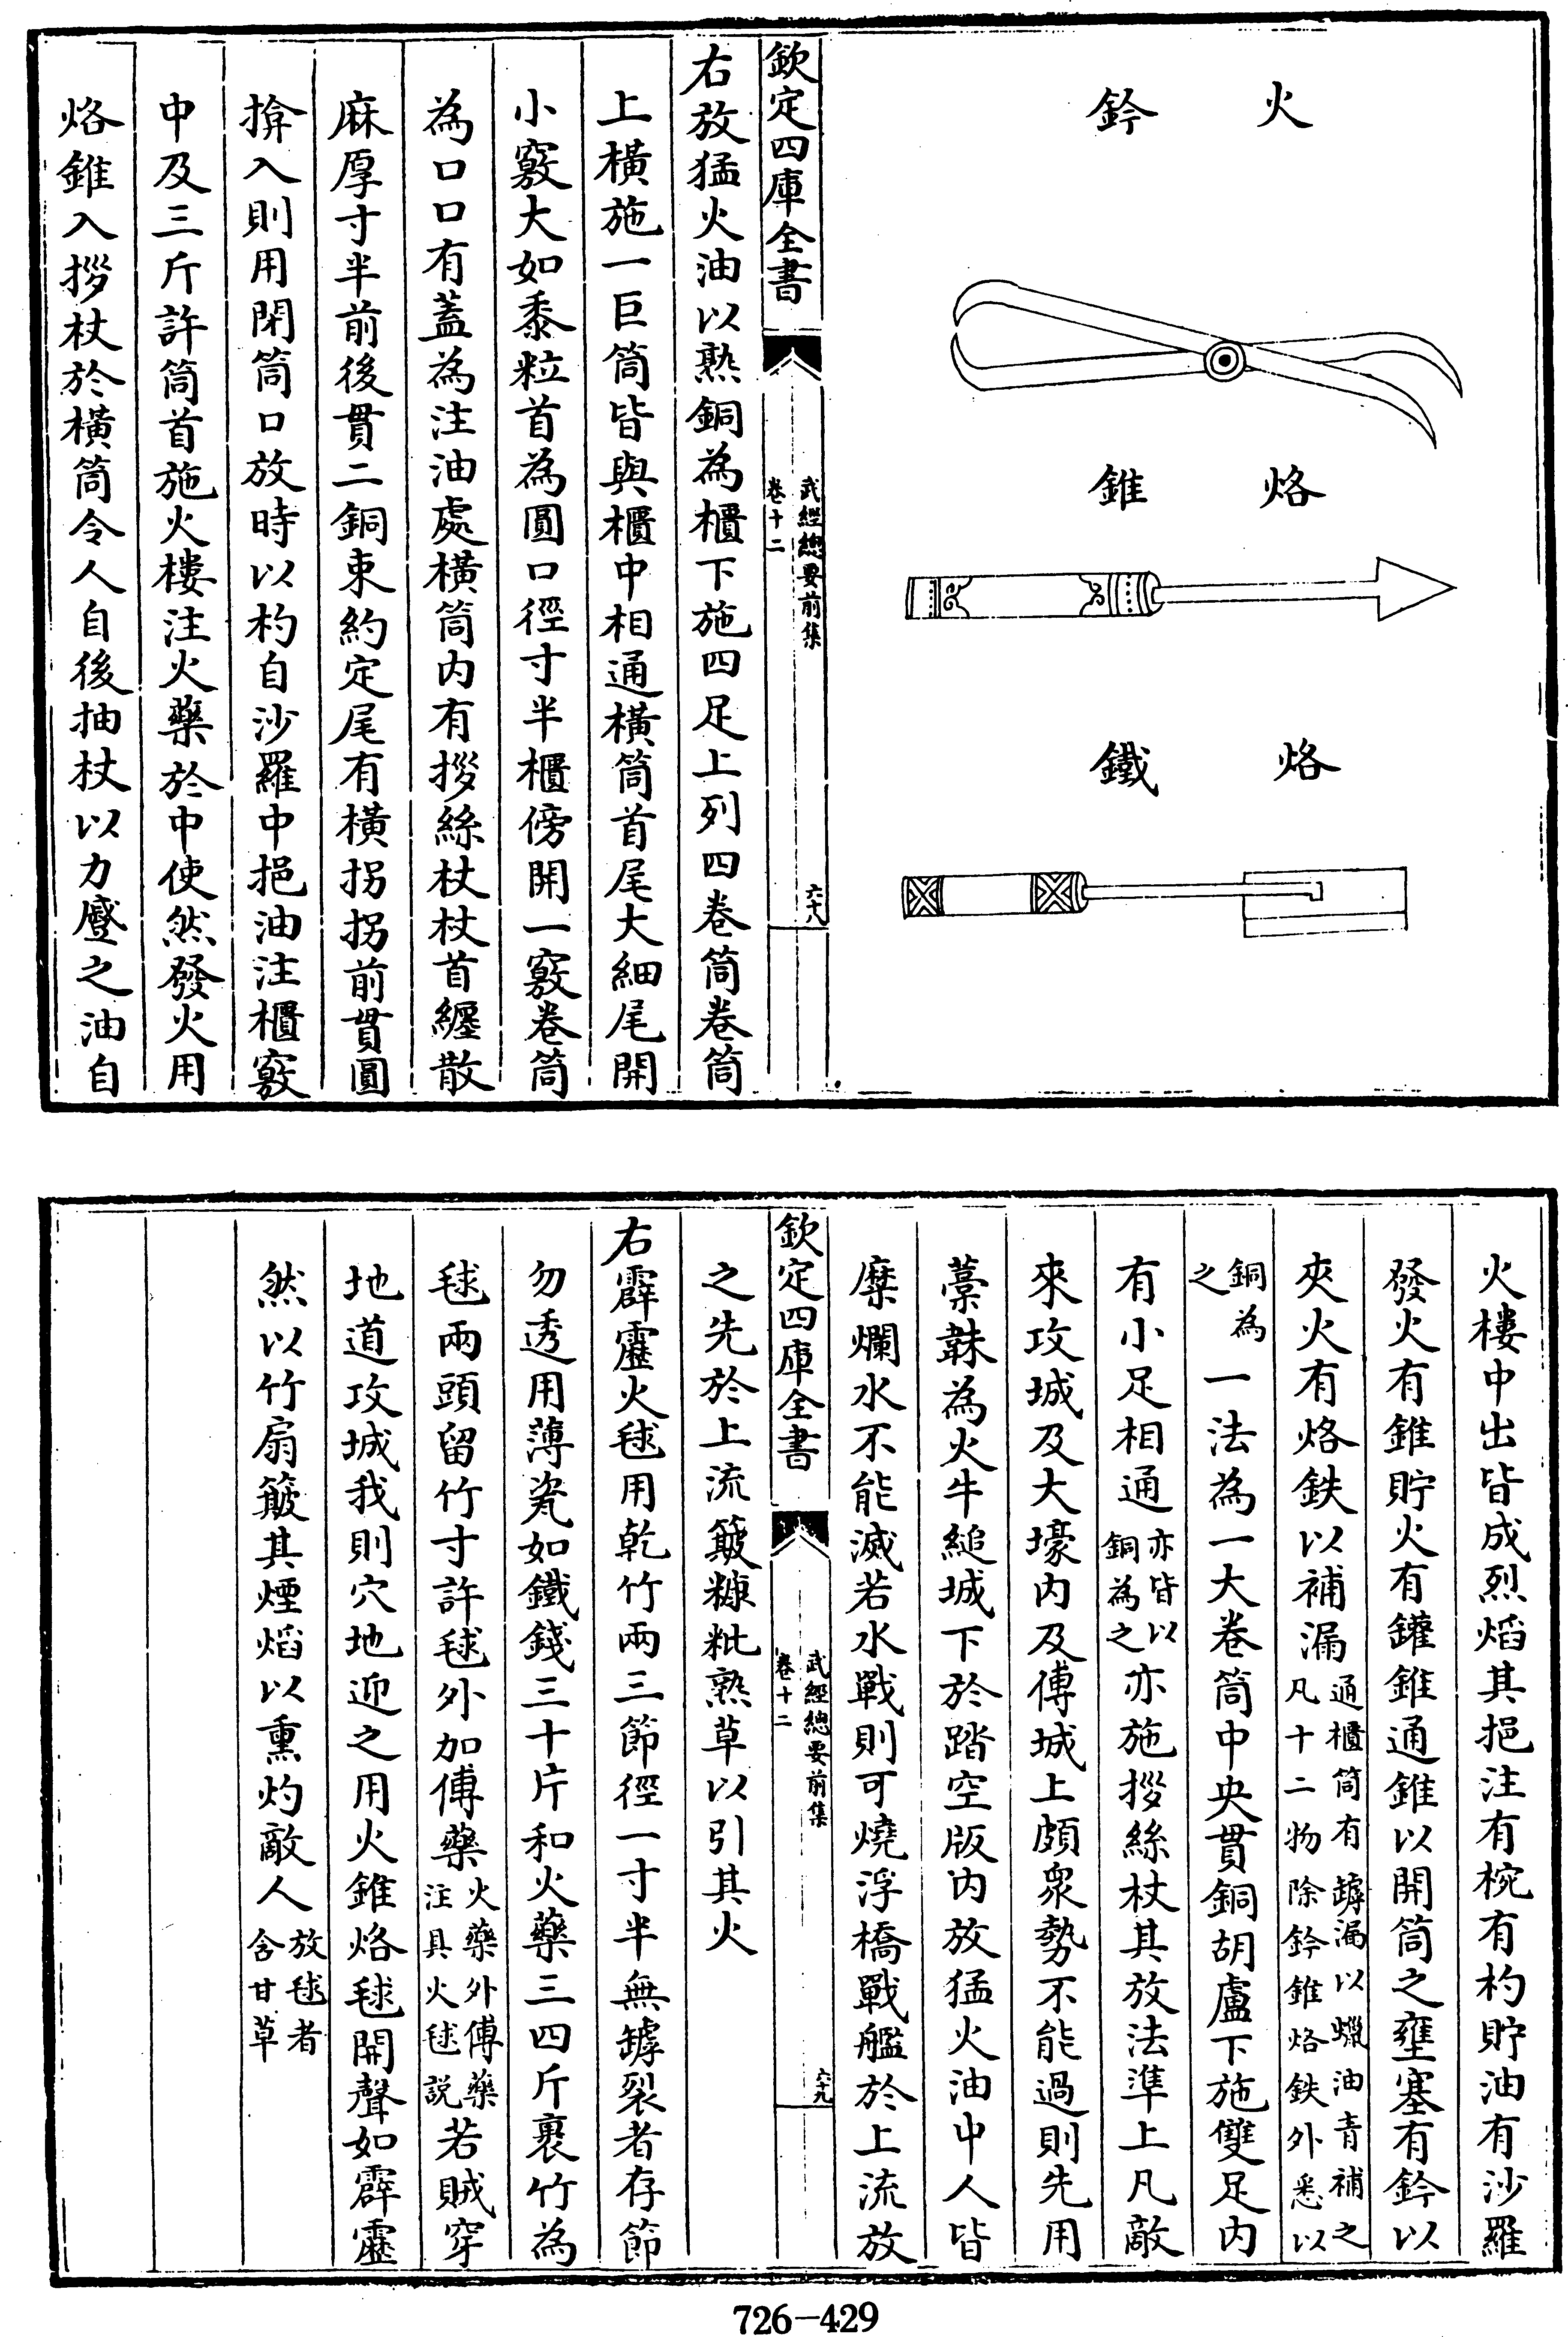 火鈐
烙錐
烙鐵
欽定四庫全書
武經總要前集
卷十二
六十八
右放猛火油以熟銅為櫃下施四足上列四卷筒卷筒
上橫施一巨筒皆與櫃中相通橫筒首尾大細尾開
小竅大如黍粒首為圓口徑寸半櫃傍開一竅卷筒
為口口有蓋為注油處橫筒内有拶絲杖杖首纒散
麻厚寸半前後貫二銅束約定尾有橫拐拐前貫圓
揜入則用閉筒口放時以杓自沙羅中挹油注櫃竅
中及三斤許筒首施火樓注火藥於中使然發火用
烙錐入拶杖於橫筒令人自後抽杖以力蹙之油自
火樓中出皆成烈焰其挹注有椀有杓貯油有沙羅
發火有錐貯火有罐錐通錐以開筒之壅塞有鈐以
夾火有烙鉄以補漏通櫃筒有罅漏以蠟油青補之凡十二物除鈐錐烙鉄外悉以
銅為之一法為一大卷筒中央貫銅胡盧下施雙足内
有小足相通亦皆以銅為之亦施拶絲杖其放法準上凡敵
來攻城及大壕内及傅城上頗衆勢不能過則先用
藁韎為火牛縋城下於踏空版内放猛火油中人皆
糜爛水不能滅若水戰則可燒浮橋戰艦於上流放
欽定四庫全書
武經總要前集
卷十二
六十九
之先於上流簸糠粃熟草以引其火
右霹靂火毬用乾竹兩三節徑一寸半無罅裂者存節
勿透用薄瓷如鐵錢三十片和火藥三四斤裹竹為
毬兩頭留竹寸許毬外加傅藥火藥外傅藥注具火毬説若賊穿
地道攻城我則穴地迎之用火錐烙毬開聲如霹靂
然以竹扇簸其煙焰以熏灼敵人放毬者含甘草
726-429